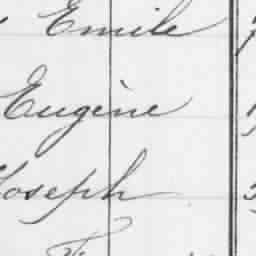 Emile
Eugène
Joseph